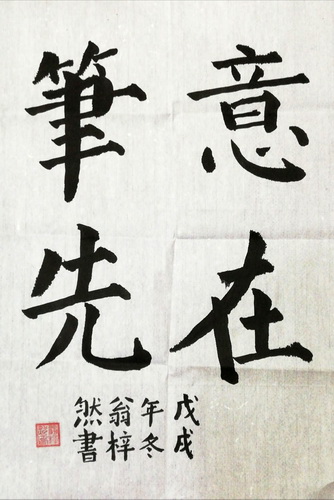 意在
筆先
戊戌
年冬
翁梓
然書